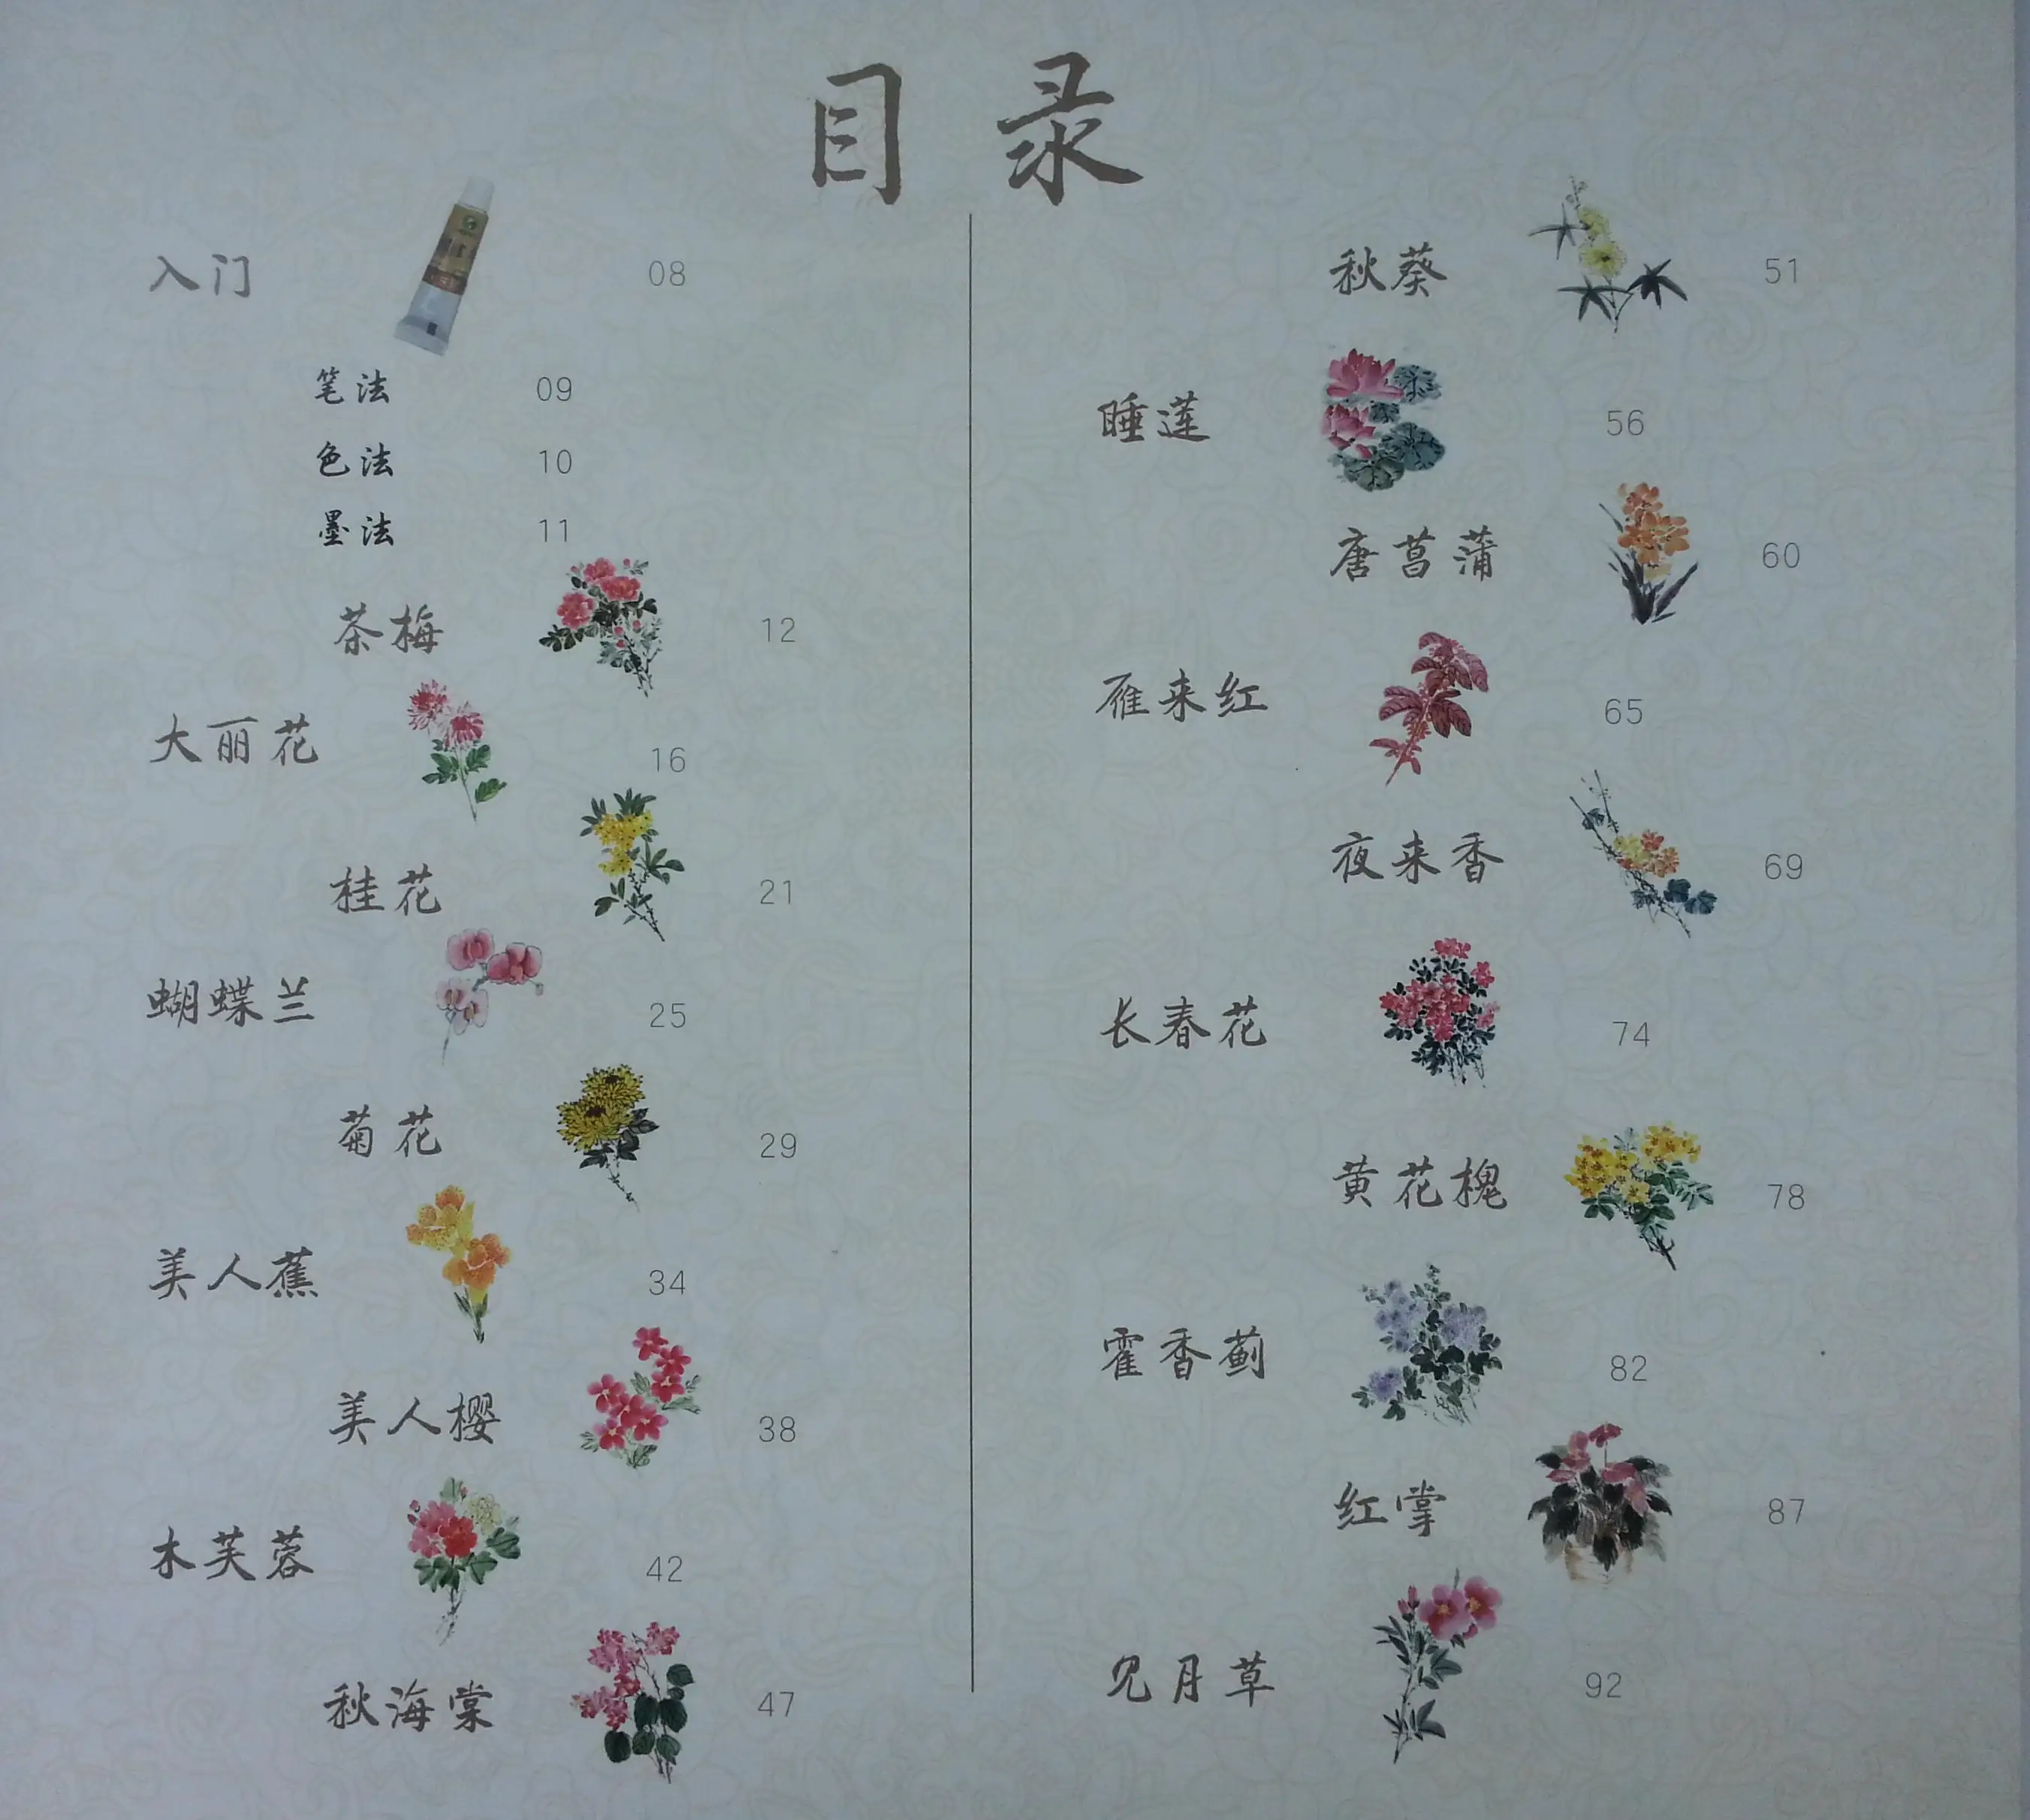 目录
入门 08
笔法 09
色法 10
墨法 11
茶梅 12
大丽花 16
桂花 21
蝴蝶兰 25
菊花 29
美人蕉 34
美人樱 38
木芙蓉 42
秋海棠 47
秋葵 51
睡莲 56
唐菖蒲 60
雁来红 65
夜来香 69
长春花 74
黄花槐 78
霍香蓟 82
红掌 87
见月草 92